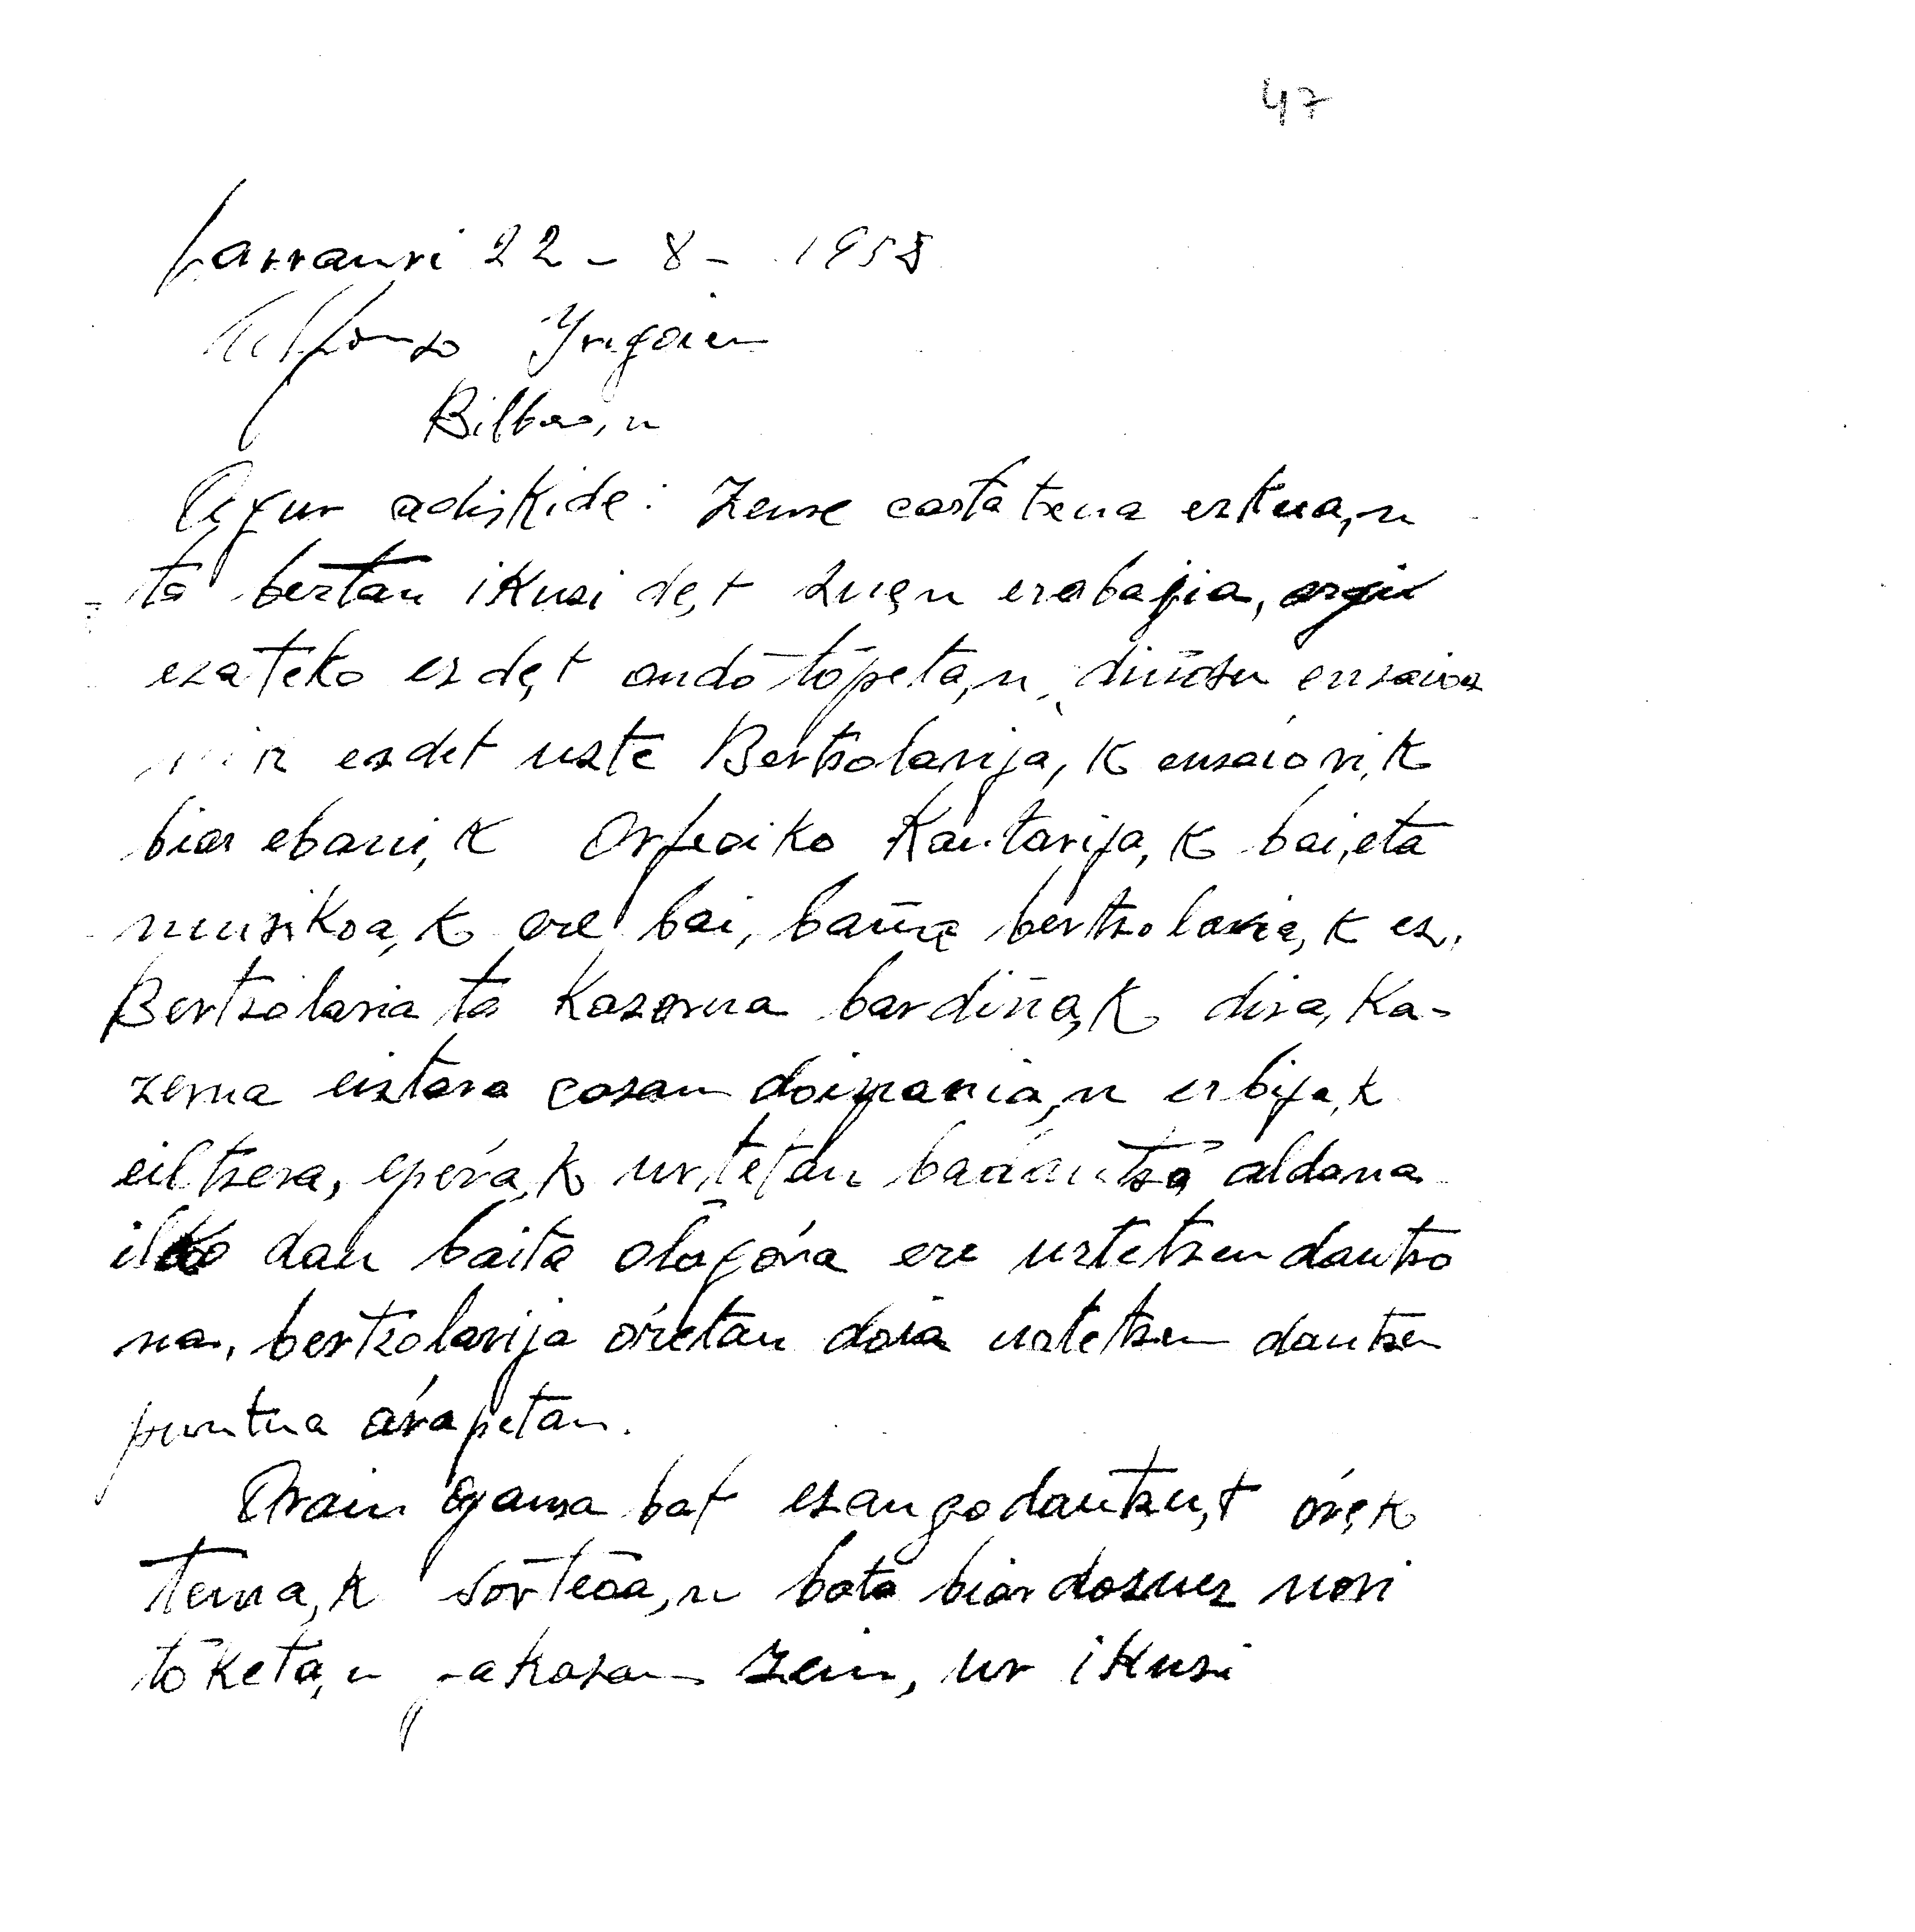 47
Larrauri 22 - 8 - 1958
Alfonso Yrigoien
Bilbao,n
Agur adiskide: Zeure cartatxua eskua,n
ta bertan ikusi de,t zue,n erabajia, argi
esateko esde,t ondo topeta,n, diñosu ensaioa
nik esdet uste Bertsolarija,k ensaiori,k
biar ebani,k Orfeoiko Kantarija,k bai,eta
musikoa,k ere bai, bañe bertsolaria,k es.
Bertsolaria ta Kasorua bardiña,k dira, Ka-
zerua eistara casan doiñania,n erbija,k
eiltzera, epeŕa,k urtetan badautsō aldana
ilko dan baita ologóŕa ere urtetzen dautso
na, bertsolarija oŕetan doia urtetzen dautsen
puntua aŕapetan.
Orain gausa bat esangodautzu,t oŕe,k
tema,k sorteoa,n bota biardosuez nori
tōketa,n jakosan zein, ur ikusi